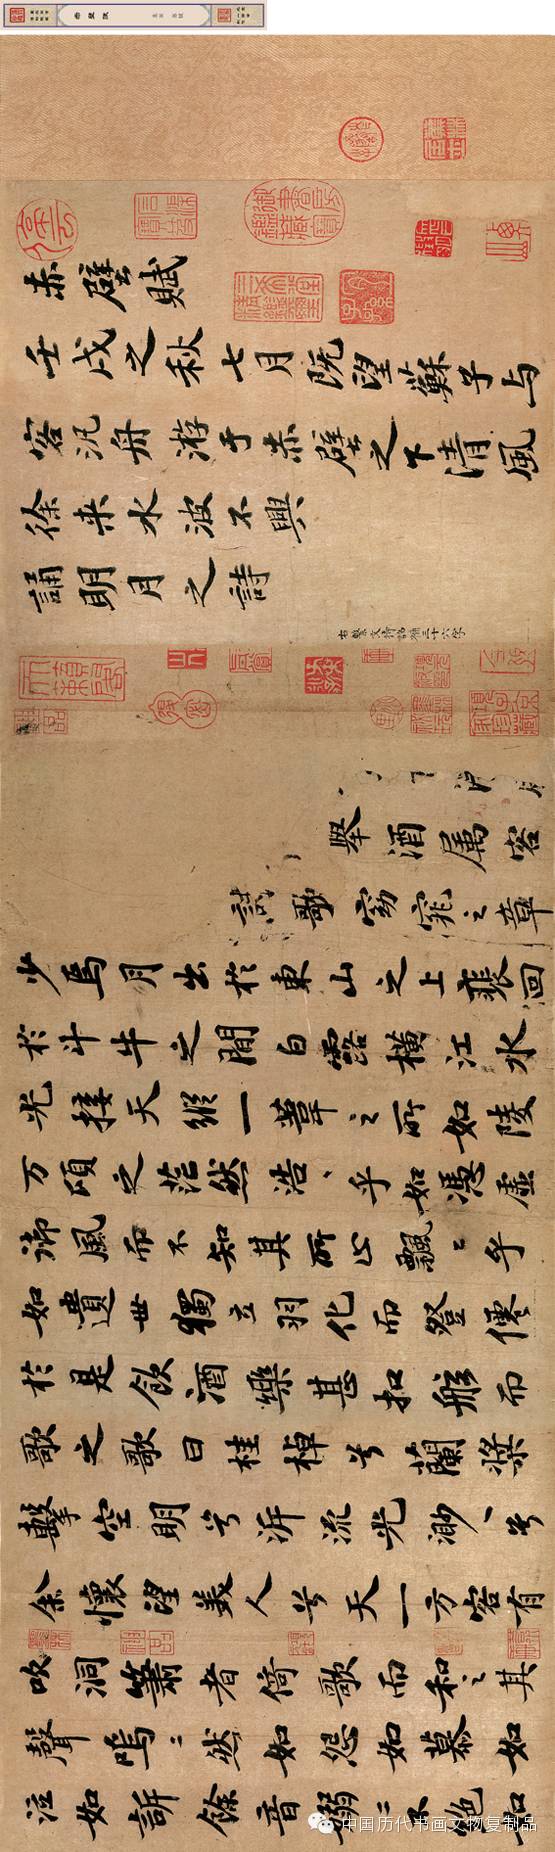 赤壁賦
壬戌之秋七月既望蘇子与
客汎舟游于赤壁之下清風
徐来水波不興
誦明月之詩
右繫文待詔補三十六字
舉酒属客
歌窈窕之章
少焉月出於東山之上裴回
於斗牛之間白露橫江水
光接天縱一葦之所如陵
万頃之茫然浩〻乎如憑虛
御風而不知其所止飄〻乎
如遺世獨立羽化而登僊
於是飲酒樂甚扣舷而
歌之歌曰桂棹兮蘭槳
擊空明兮泝流光渺〻兮
余懷望美人兮天一方客有
吹洞簫者倚歌而和之其
聲嗚〻然如怨如慕如
泣如訴餘音嫋〻不絕如
中国历代书画文物复制品